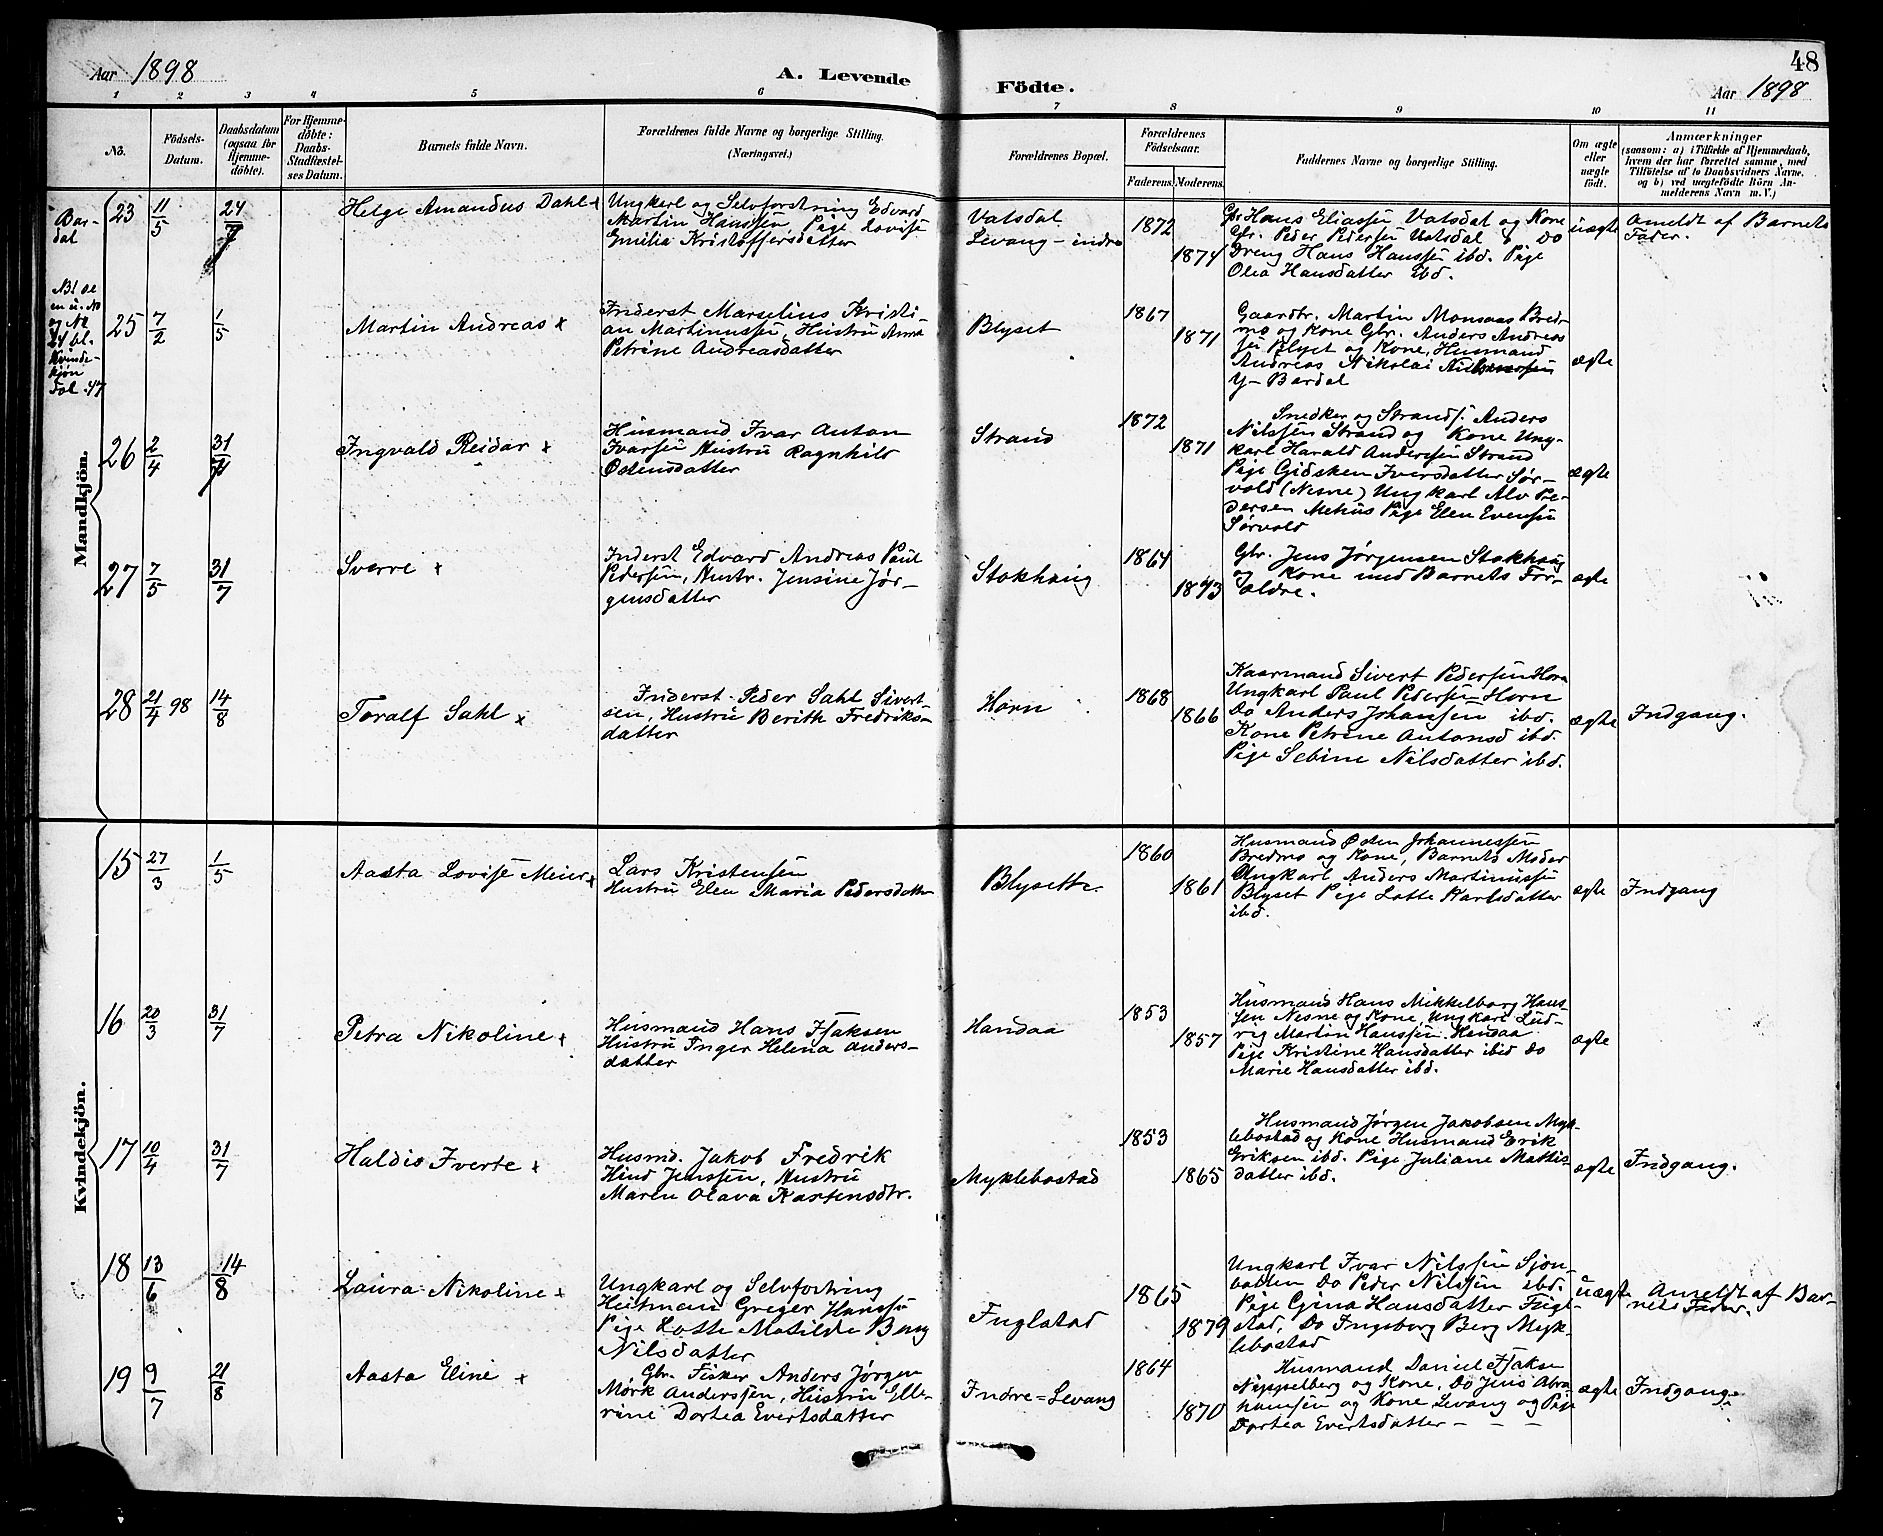 Aar 1898
A. Levende
Födte.
48
Aar 1898
1 2 3 4 5 6 7 8 9 10 11
No.
Födsels-
Datum.
Daabsdatum
(ogsaa for
Hjemme-
döbte).
For Hjemme-
döbte:
Daabs-
Stadfæstel-
ses Datum.
Barnets fulde Navn.
Forældrenes fulde Navne og borgerlige Stilling.
(Næringsvei.)
Forældrenes Bopæl.
Forældrenes
Födselsaar.
Faderens. Moderens.
Faddernes Navne og borgerlige Stilling.
Om ægte
eller
uægte
födt.
Anmærkninger
(saasom: a) i Tilfælde af Hjemmedaab,
hvem der har forrettet samme, med
Tilföielse af to Daabsvidners Navne,
og b) ved uægtefödte Börn An-
melderens Navn m. V.)
Mandkjön.
Bar-
dal
23
11/5
24/7
Helge Amandus Dahl x
Ungkarl og Selvforstring Edvard
Martin Hanssen Pige Lovise
Emilia Kristoffersdatter
Vatsdal
Levang - indre
1872
1874
Gbr Hans Eliassen Vatsdal og Kone
Gbr. Peder Pedersen Vatsdal o Do
Dreng Hans Hanssen ibd. Pige
Olea Hansdatter ibd.
uægte
Anmeldt af Barnets
Fader.
25
7/2
1/5
Martin Andreas x
Inderst Marselius Kristi-
an Martinussen, Hustru Anna
Petrine Andreasdatter
Blyset
1867
1871
Gaardbr. Martin Monsaas Bred-
mo og Kone Gbr. Anders Andreas
sen Blyset og Kone, Husmand
Andreas Nikolai
Y- Bardal
ægte
26
2/4
31/7
Ingvald Reidar x
Husmand Ivar Anton
Ivarsen Hustru Ragnhild
Østensdatter
Strand
1872
1871
Snedker og Strands. Anders
Nilssen Strand og Kone Ung-
karl Harald Anderssen Strand
Pige Gidsken Iversdatter Sør-
vold (Nesne) Ungkarl Alv Pe-
dersen Mehus Pige Elen Evensen
Sørvold
ægte
27
7/5
31/7
Sverre x
Inderst Edvard Andreas Paul
Pedersen, Hustr. Jensine Jør-
gensdatter
Stokhaug
1864
1873
Gbr. Jens Jørgensen Stokhaug
og Kone med Barnets For-
ældre.
ægte
28
21/4 98
14/8
Toralf Sahl x
Inderst Peder Sahl Sivert-
sen, Hustru Berith Fredriks-
datter
Horn
1868
1866
Kaarmand Sivert Pedersen Horn
Ungkarl Paul Pedersen Horn
Do Anders Johansen ibd.
Kone Petrine Antonsd ibd.
Pige Sebine Nilsdatter ibd.
ægte
Indgang.
Kvindekjön.
15
27/3
1/5
Aasta Lovise Meier x
Lars Kristensen
Hustru Elen Maria Pedersdatter
Blysette.
1860
1861
Husmand Østen Johannessen
Bredmo og Kone, Barnets Moder
Ungkarl Anders Martinussen
Blyset Pige Lotte Karlsdatter
ibd.
ægte
Indgang
16
20/3
31/7
Petra Nikoline x
Husmand Hans Isaksen
Hustru Inger Helena Anders-
datter
Handaa
1853
1857
Husmand Hans Mikkelborg Hans-
sen Nesne og Kone, Ungkarl Lud-
vig Martin Hanssen Handaa
Pige Kristine Hansdatter ibid Do
Marie Hansdatter ibd.
ægte
17
10/4
31/7
Haldis Iverte x
Husmd. Jakob Fredrik
Hind Jenssen, Hustru
Maren Olava Karstensdtr.
Myklebostad
1853
1865
Husmand Jørgen Jakobsen Myk-
lebostad og Kone Husmand Erik
Eriksen ibd. Pige Juliane Mathis-
datter ibd.
ægte
Indgang.
18
13/6
14/8
Laura Nikoline x
Ungkarl og Selvforstring
Hutman Greger Hanssen
Pige Lotte Matilde Berg
Nilsdatter
Fuglstad
1865
1879
Ungkarl Ivar Nilssen Sjon-
botten Do Peder Nilssen ibd.
Pige Gina Hansdatter Fugl-
stad, Do Ingeborg Berg Myk-
lebostad
uægte
Anmeldt af Bar-
nets Fader.
19
9/7
21/8
Aasta Eline x
Gbr. Fisker Anders Jørgen
Mørk Anderssen, Hustru Elle-
rine Dortea Evertsdatter
Indre=Levang
1864
1870
Husmand Daniel Isaksen
Nippelberg og Kone, Do Jens Abra-
hamsen og Kone Levang og Pige
Dortea Evertsdatter - - -
ægte
Indgang.